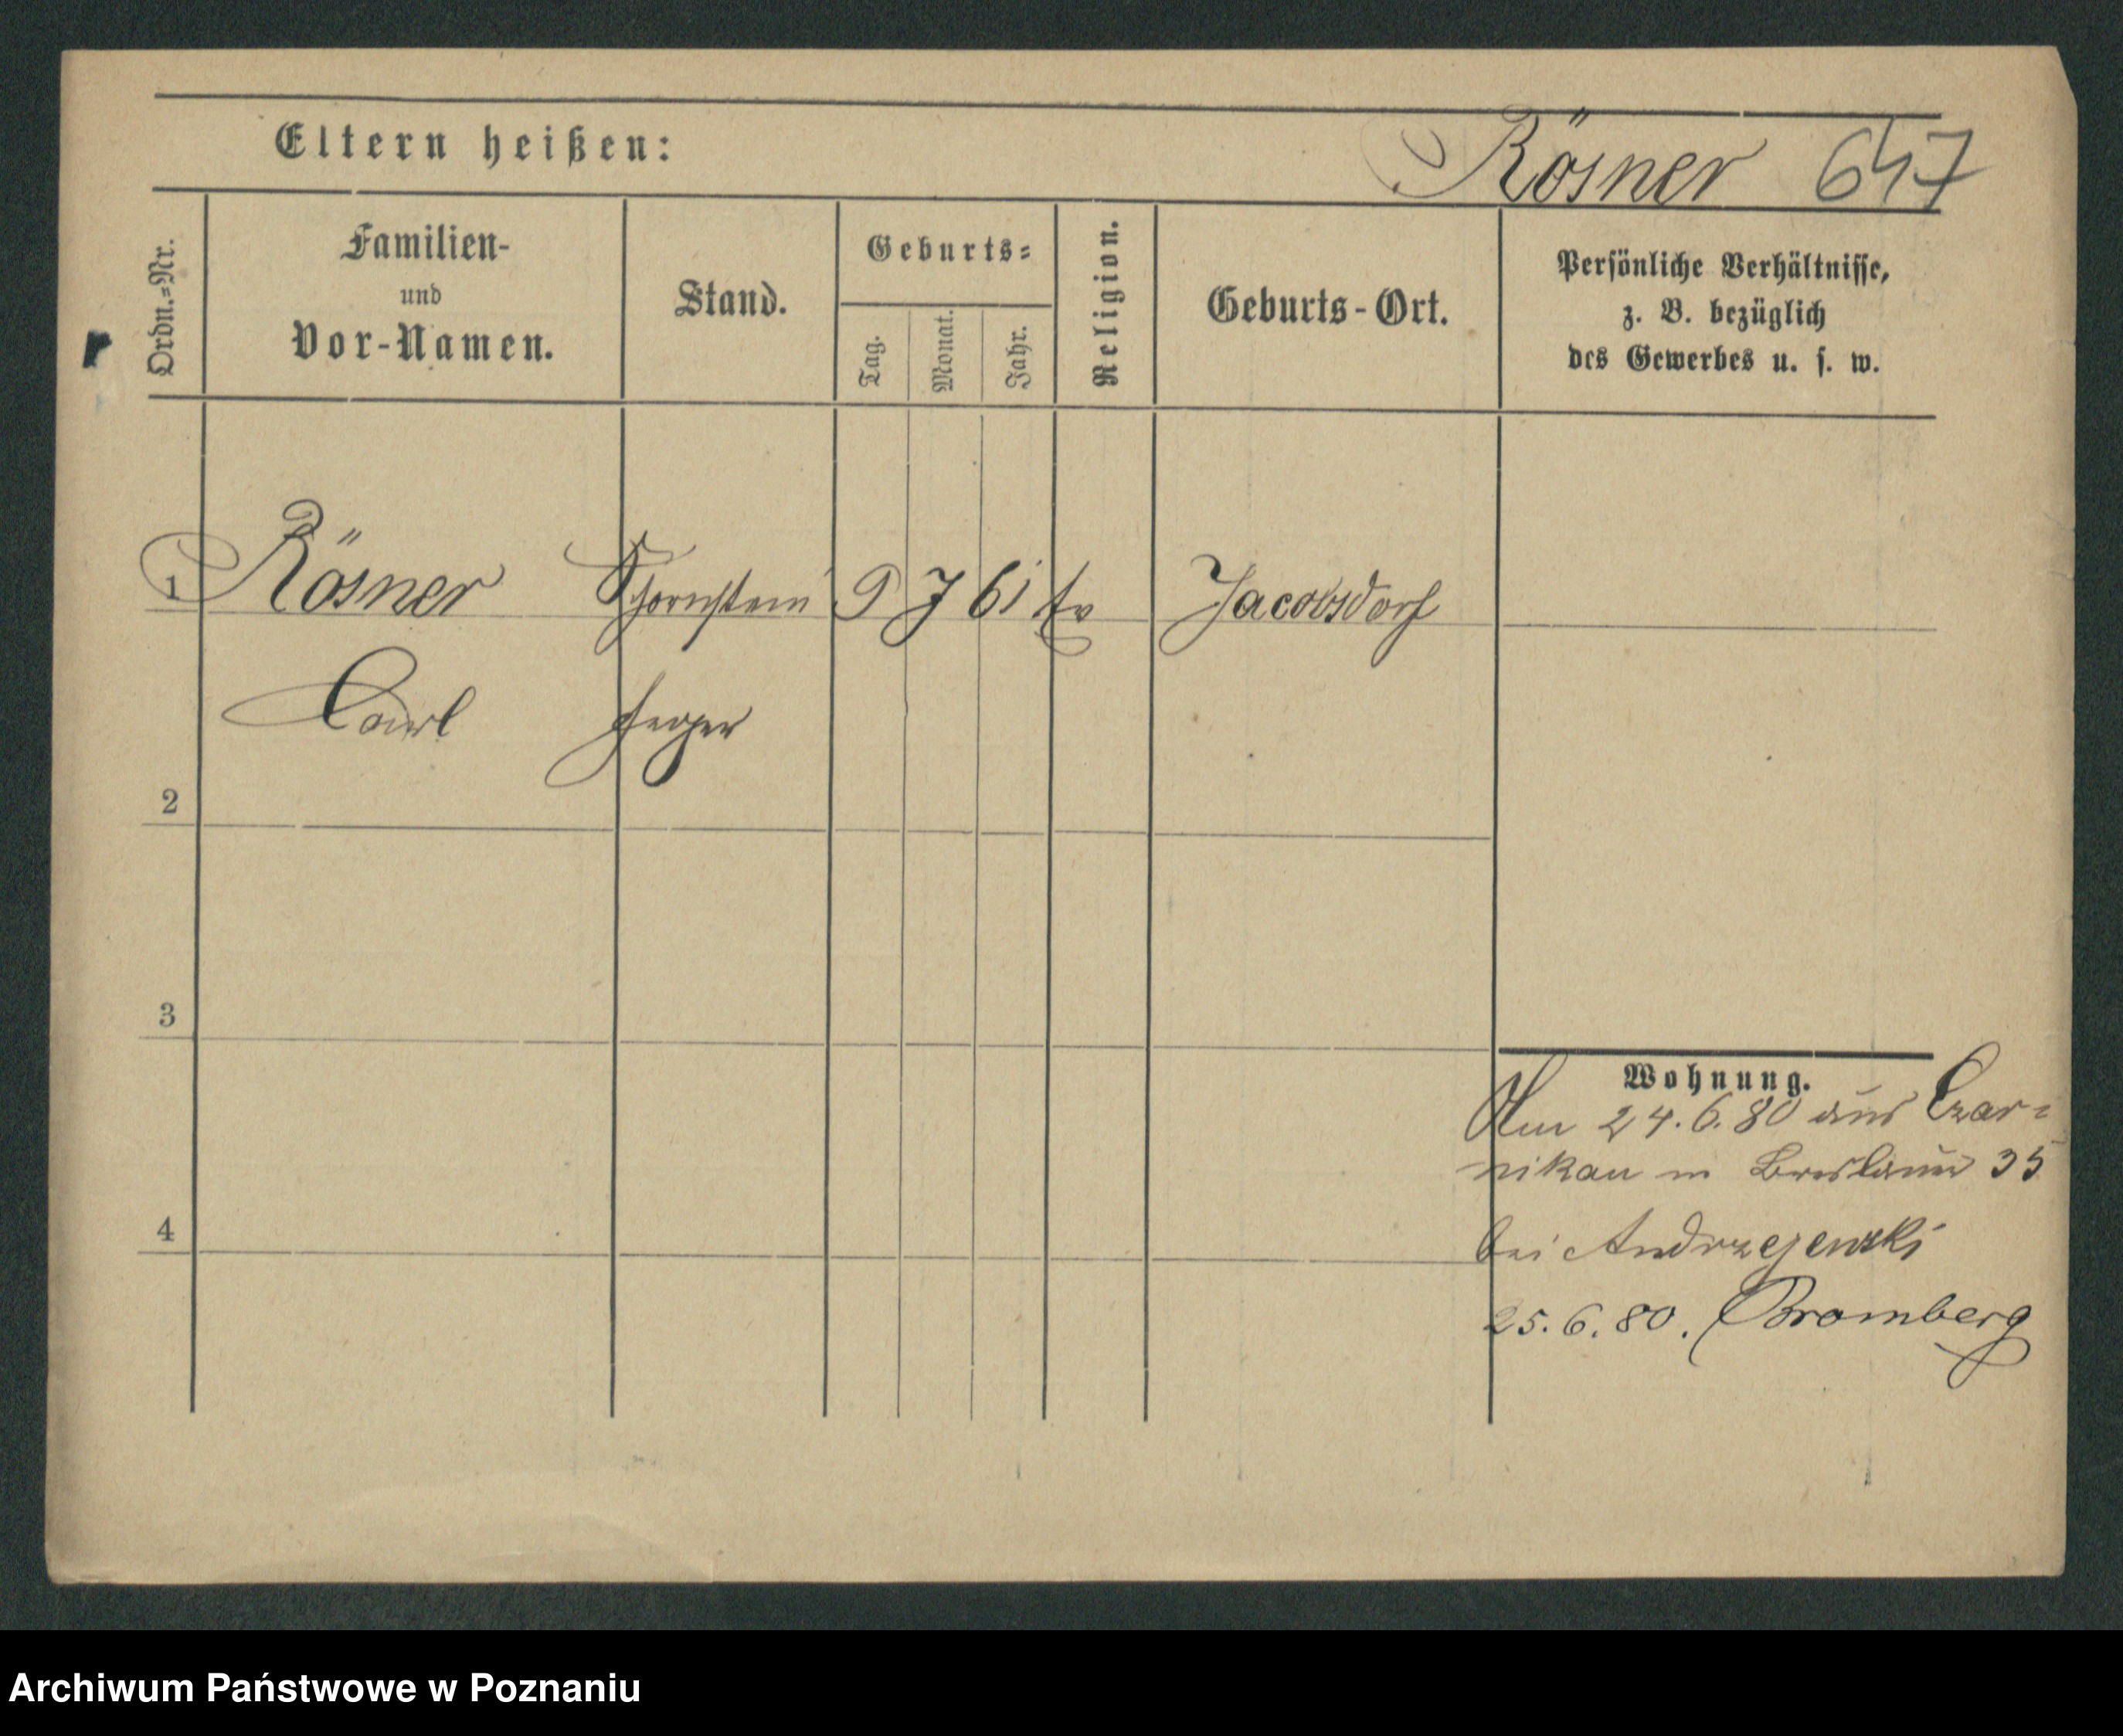 Eltern heißen:
Rösner 647
Ordn.=Nr.
Familien-
und
Vor-Namen.
Stand.
Geburts=
Tag.
Monat.
Jahr.
Religion.
Geburts-Ort.
Persönliche Verhältnisse,
z. B. bezüglich
des Gewerbes u. s. w.
1 Rösner Schornstein 9 7 61 Ev Jacobsdorf
Carl feger
2
3
Wohnung.
Am 24.6.80 aus Czar=
nikau in Breslauer 35
4
bei Andrzejewski
25.6.80. Bromberg
Archiwum Państwowe w Poznaniu